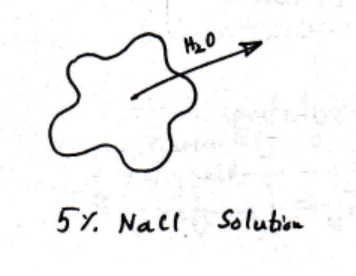 H₂O
5% NaCl Solution